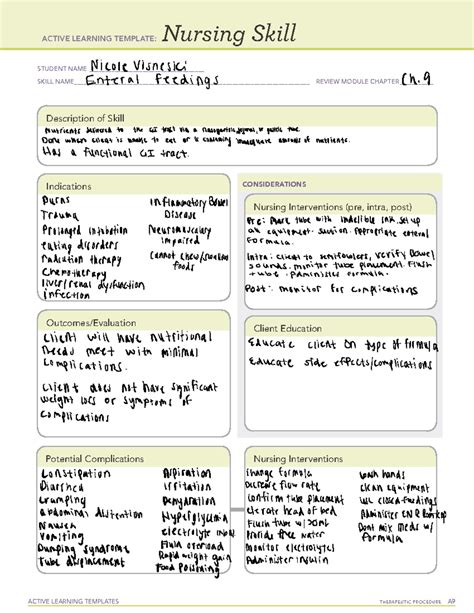 ACTIVE LEARNING TEMPLATE: Nursing Skill
STUDENT NAME Nicole Visneski
SKILL NAME Enteral Feedings REVIEW MODULE CHAPTER Ch. 9
Description of Skill
Nutrients delivered to the GI tract via a nasogastric, jejunal, or gastric tube.
Done when client is unable to eat or is consuming inadequate amounts of nutrients.
Has a functional GI tract.
Indications
Burns
Trauma
Prolonged intubation
eating disorders
Radiation therapy
Chemotherapy
liver/renal dysfunction
infection
Inflammatory Bowel
Disease
Neuromuscular
impaired
Cannot chew/swallow
foods
CONSIDERATIONS
Nursing Interventions (pre, intra, post)
Pre: Mark tube with indelible ink, set up
all equipment, suction. Appropriate enteral
formula.
Intra: client to semifowlers, verify Bowel
sounds, monitor tube placement. Flush
tube. Administer formula.
Post: monitor for complications
Outcomes/Evaluation
Client will have nutritional
needs meet with minimal
complications.
Client does not have significant
weight loss or symptoms of
complications
Client Education
Educate client on type of formula
Educate side effects/complications
Potential Complications
Constipation
Diarrhea
Cramping
abdominal distention
Nausea
vomiting
Dumping syndrome
Tube displacement
Aspiration
Irritation
Dehydration
Hyperglycemia
electrolyte
Fluid overload
Rapid weight gain
Food Poisoning
Nursing Interventions
Change formula
Decrease flow rate
Confirm tube placement
elevate head of bed
Flush tube w/30mL
Provide free water
Monitor electrolytes
Administer insulin
wash hands
clean equipment
use closed feedings
Administer @ R
Dont mix meds w/
formula
ACTIVE LEARNING TEMPLATES THERAPEUTIC PROCEDURE A9